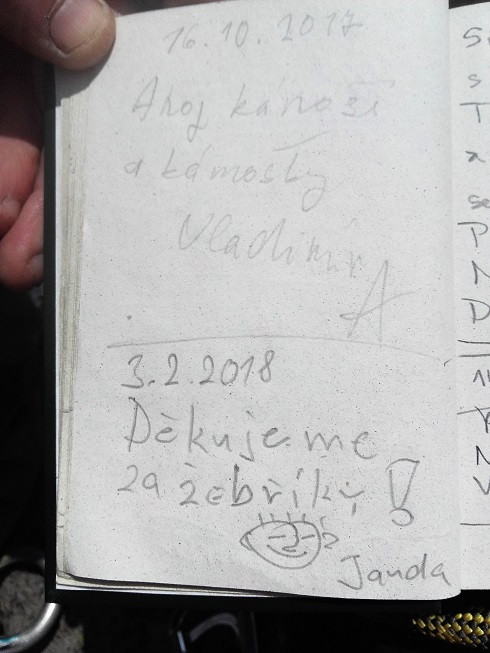 16.10.2017
Ahoj kámoši
a kámošky
Vladimír
A
3.2.2018
Děkujeme
za žebříky!
Janda
S
s
T
x
se
P
N
D
V